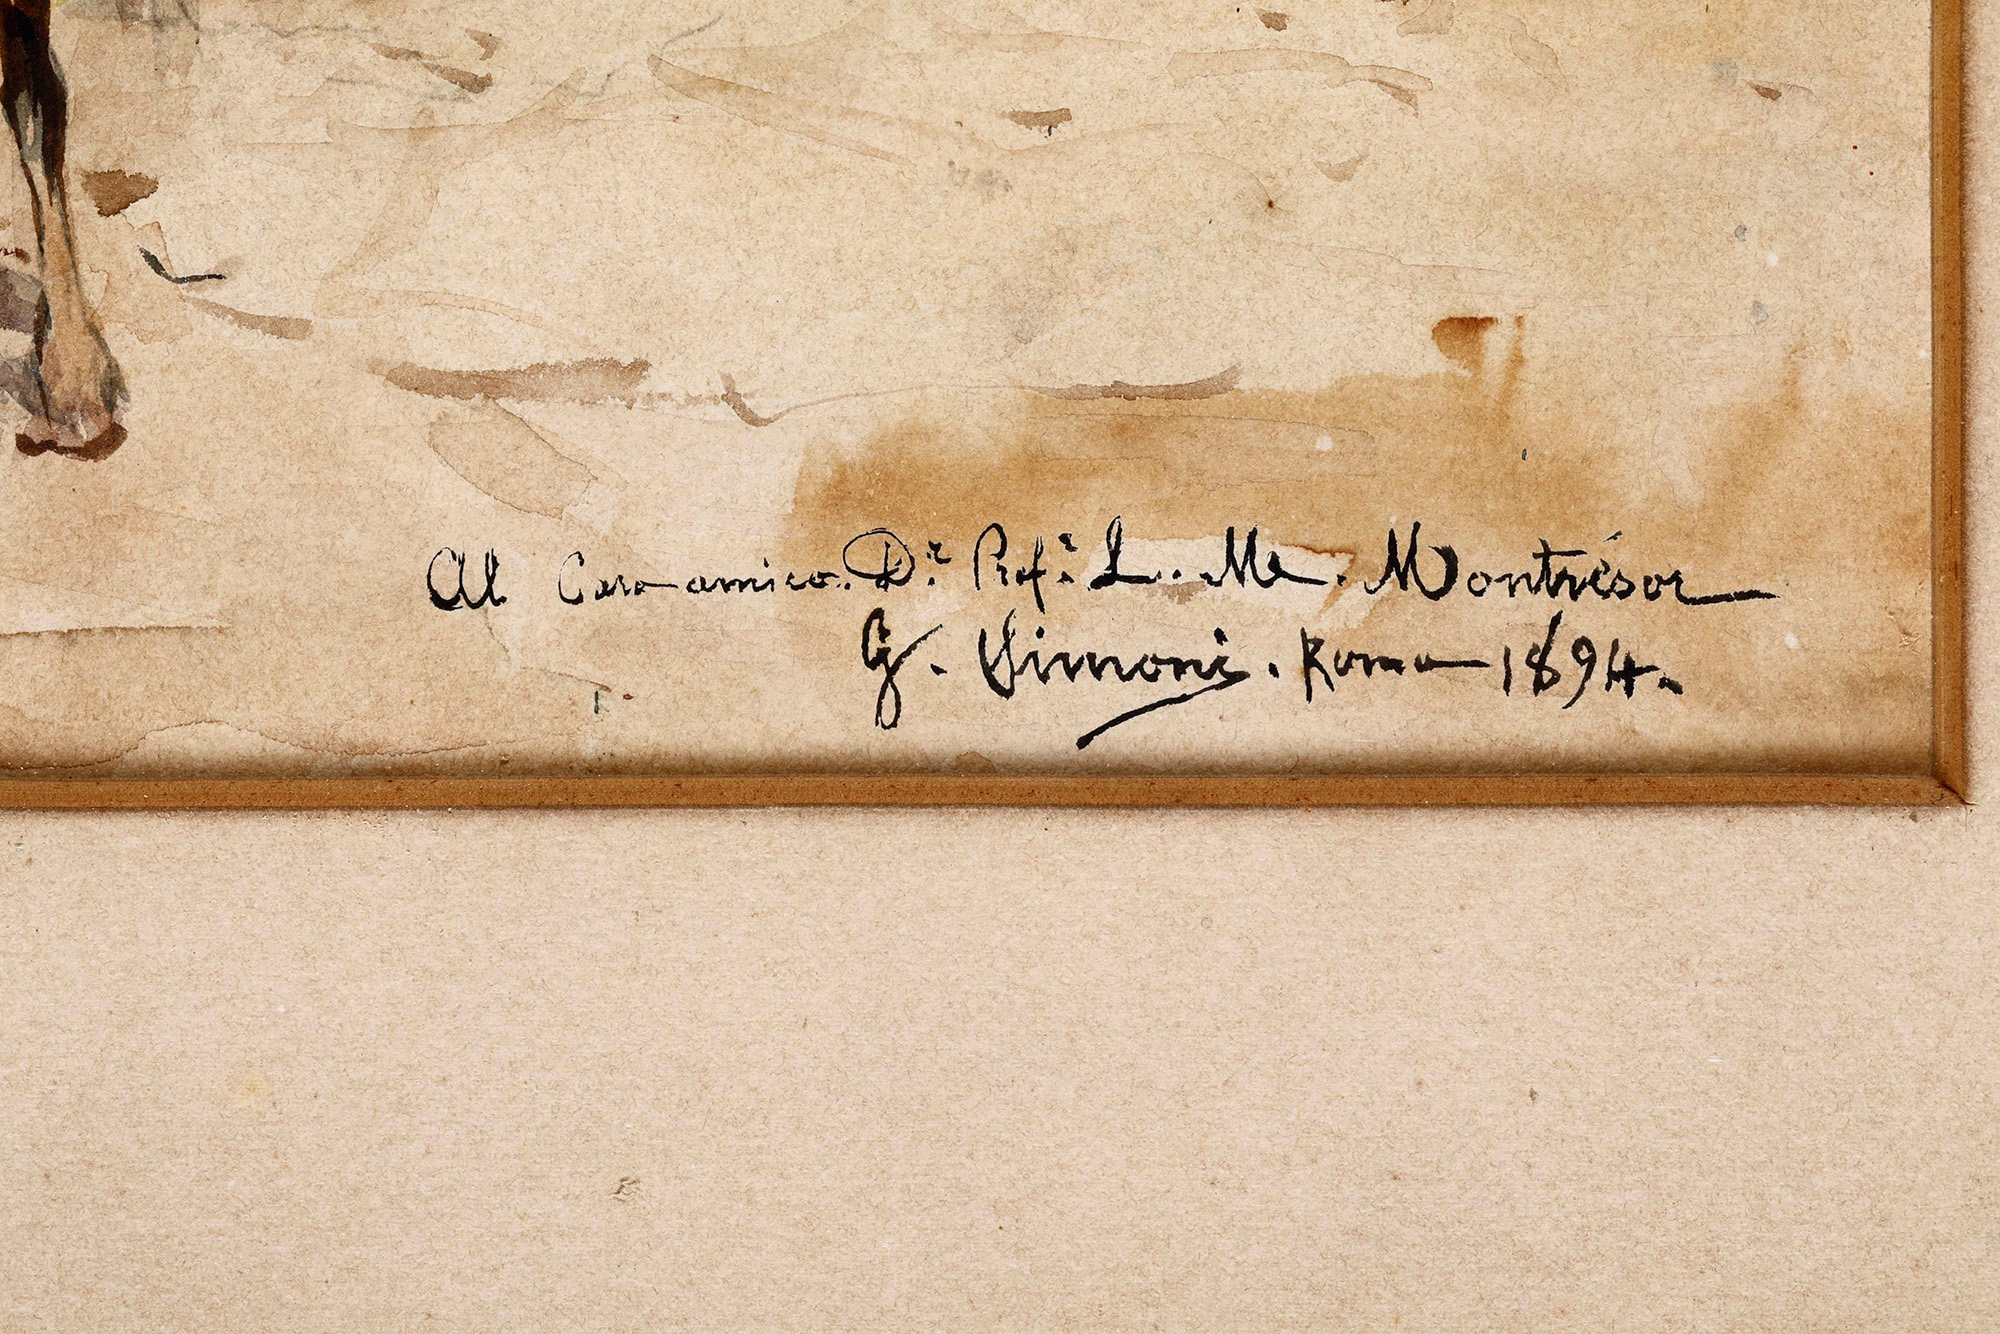 Al Caro amico. D.r Prof.r L. Me. Montrésor
G. Simoni. Roma 1894.